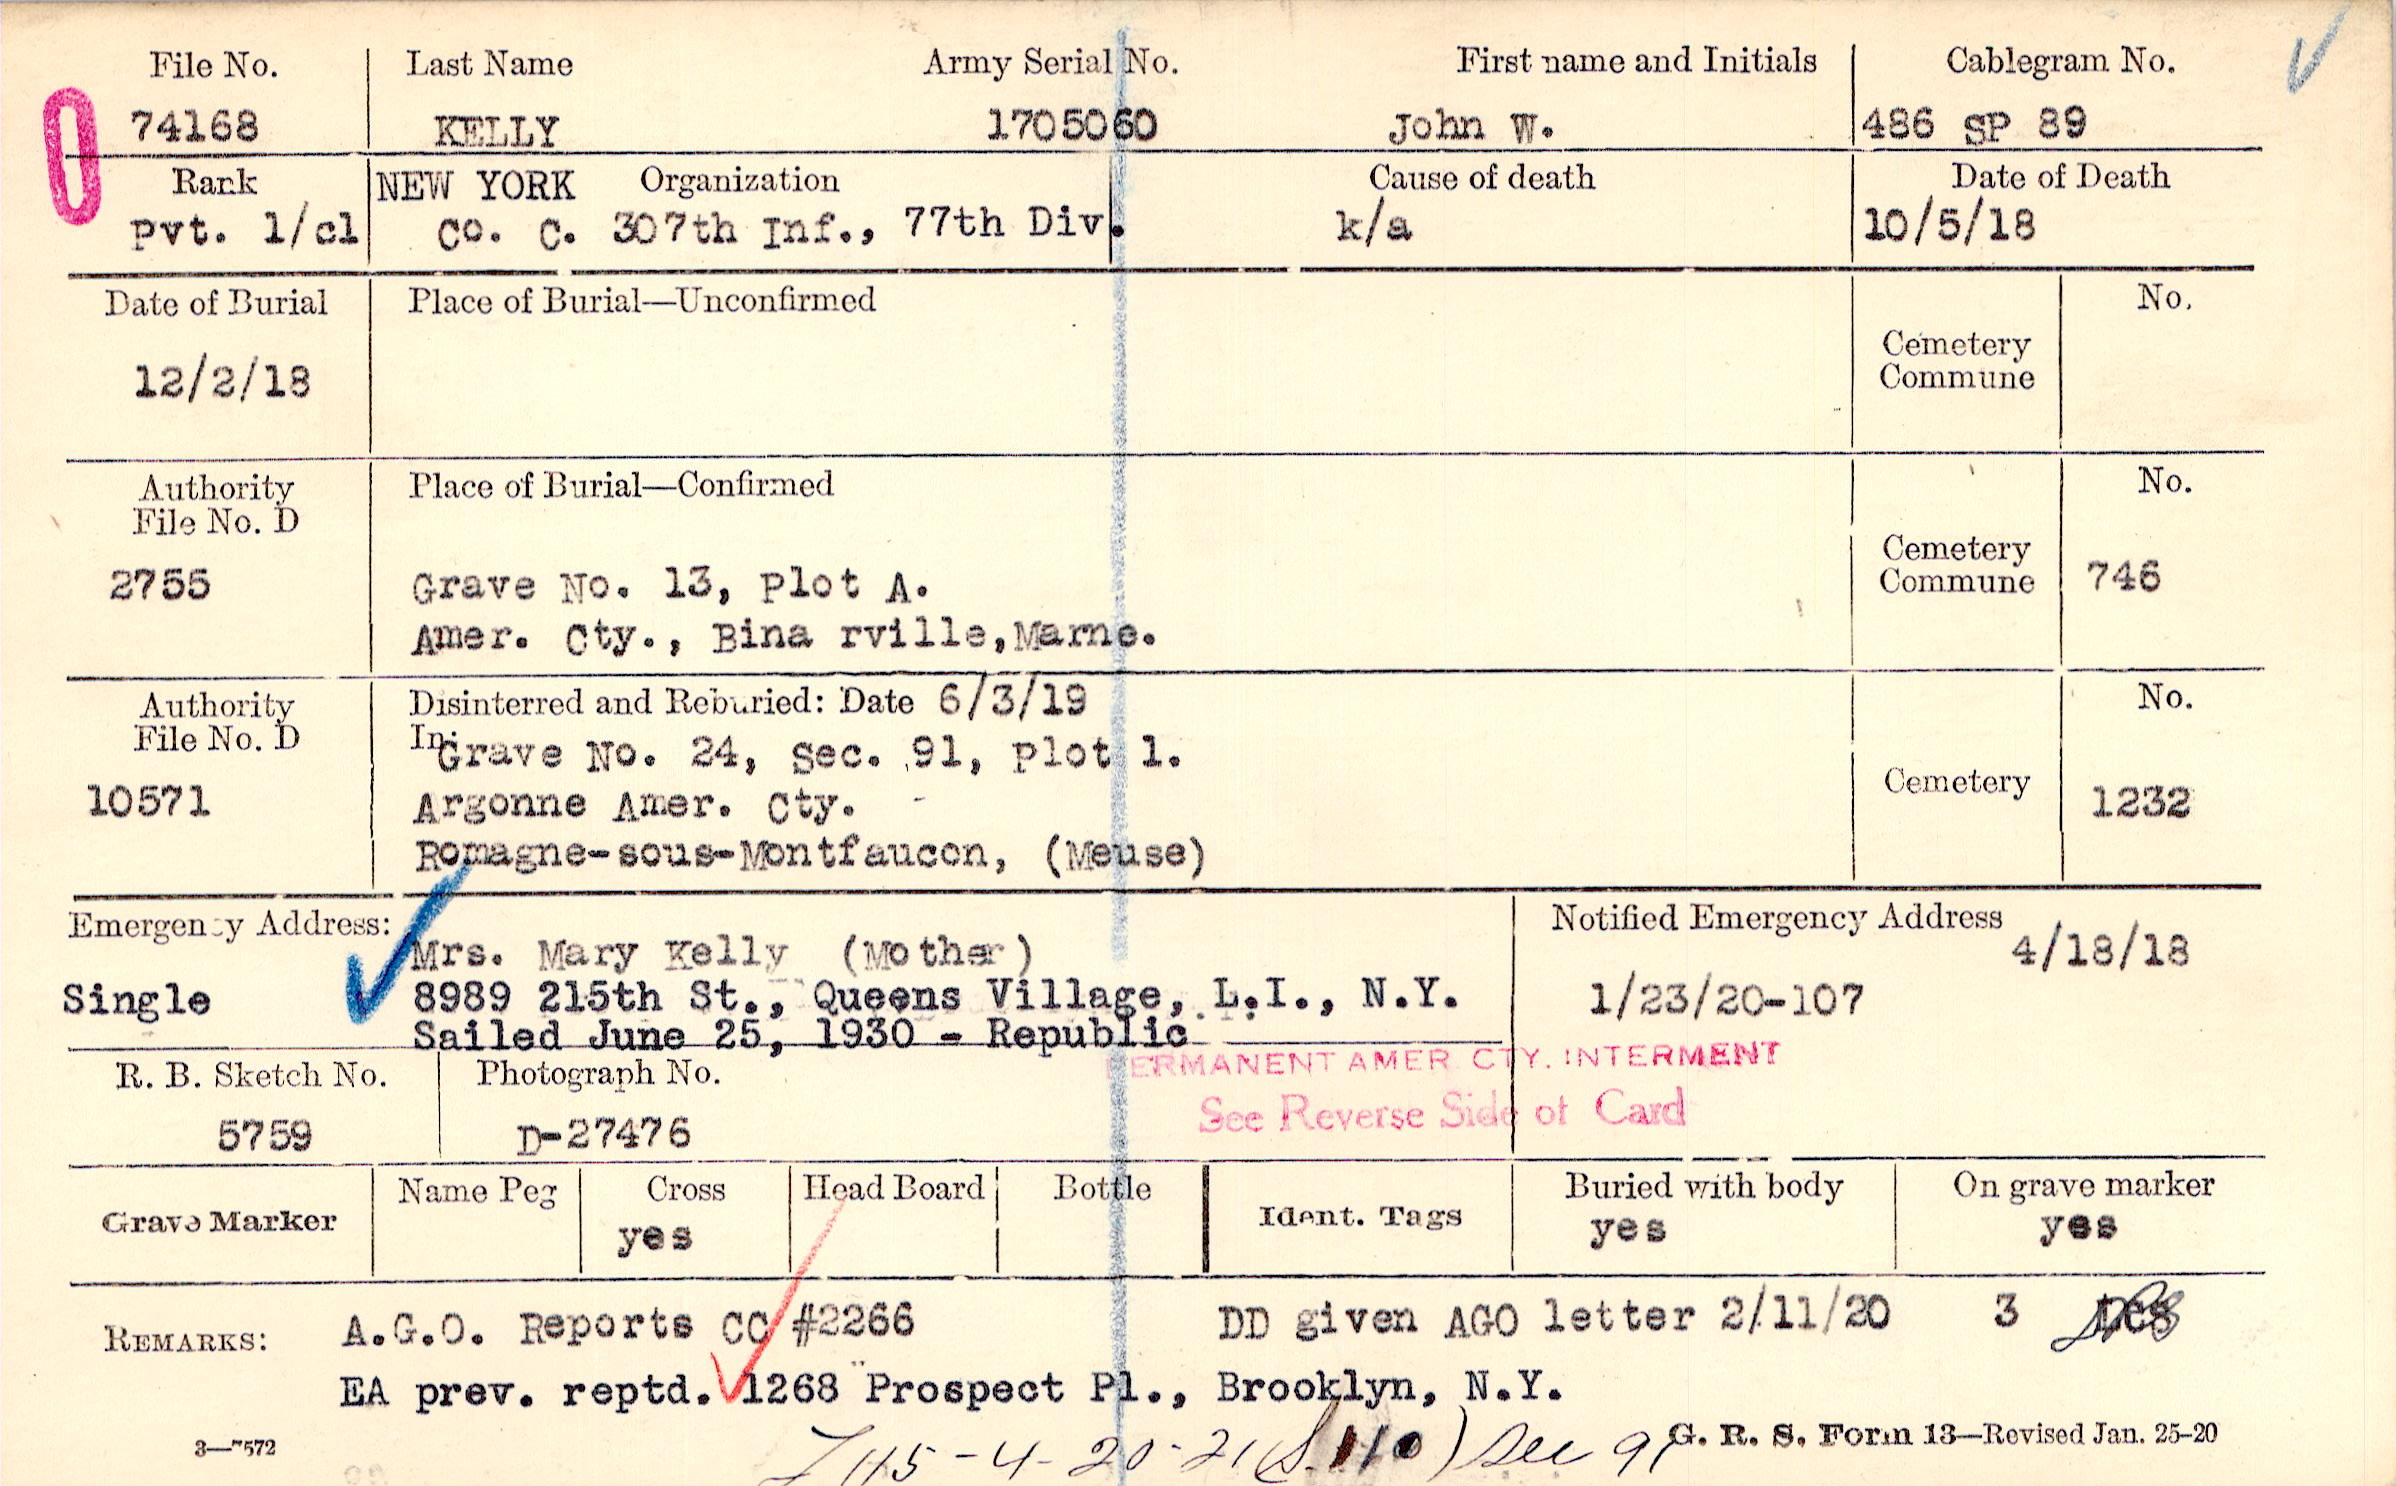 File No. Last Name Army Serial No. First name and Initials Cablegram No.
74168 KELLY 1705060 John W. 486 SP 89
Rank NEW YORK Organization Cause of death Date of Death
Pvt. 1/cl Co. C. 307th Inf., 77th Div. k/a 10/5/18
Date of Burial Place of Burial—Unconfirmed No.
12/2/18 Cemetery
Commune
Authority Place of Burial—Confirmed No.
File No. D
2755 Grave No. 13, Plot A. Cemetery
Commune 746
Amer. Cty., Bina rville, Marne.
Authority Disinterred and Reburied: Date 6/3/19 No.
File No. D In: Grave No. 24, Sec. 91, Plot 1.
10571 Argonne Amer. Cty. Cemetery 1232
Romagne-sous-Montfaucon, (Meuse)
Emergency Address: Notified Emergency Address
Mrs. Mary Kelly (Mother) 4/18/18
Single 8989 215th St., Queens Village, L.I., N.Y. 1/23/20-107
Sailed June 25, 1930 - Republic
PERMANENT AMER. CTY. INTERMENT
R. B. Sketch No. Photograph No.
See Reverse Side of Card
5759 D-27476
Grave Marker Name Peg Cross Head Board Bottle Ident. Tags Buried with body On grave marker
yes yes yes
REMARKS: A.G.O. Reports CC #2266 DD given AGO letter 2/11/20 3
EA prev. reptd. 1268 Prospect Pl., Brooklyn, N.Y.
3—7572 G. R. S. Form 13—Revised Jan. 25-20
115-4-20-21 See 91